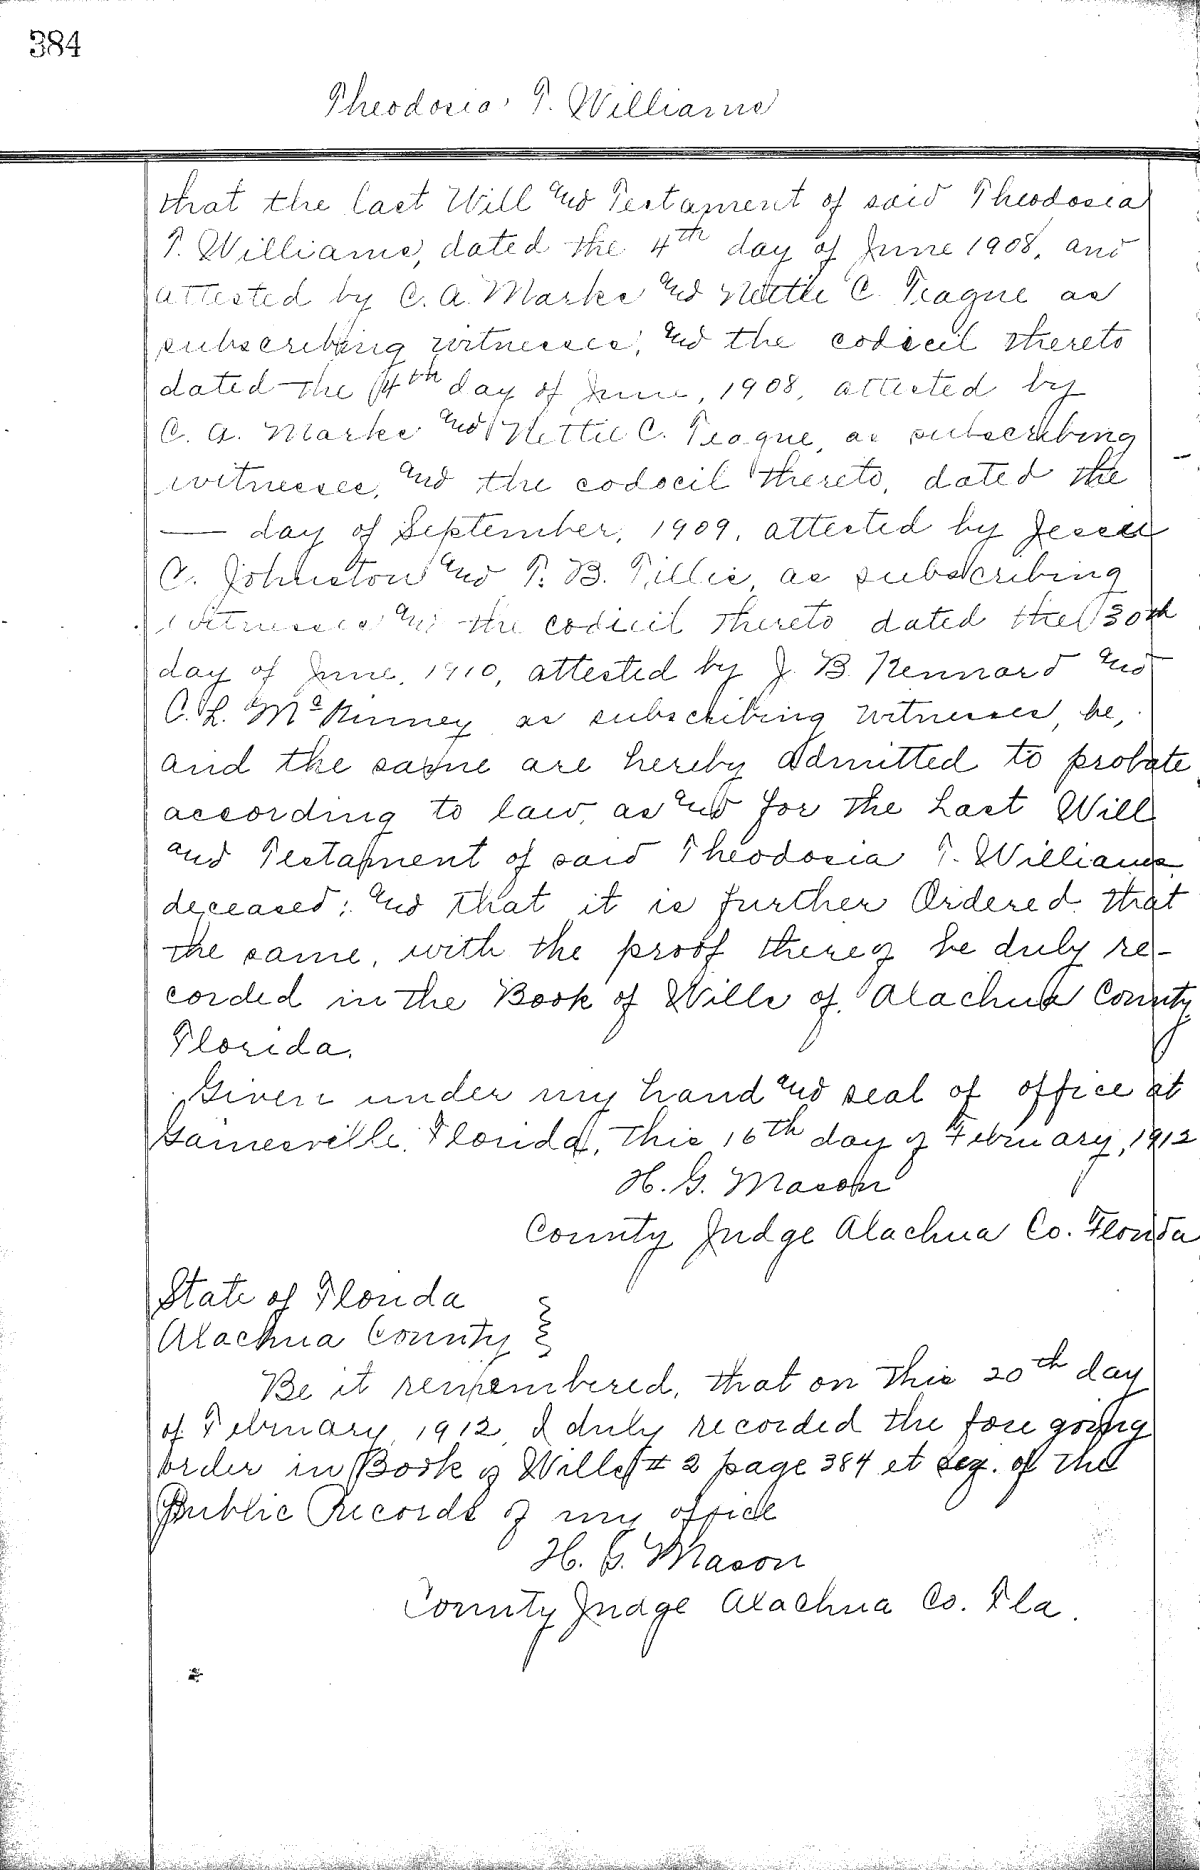 384
Theodosia T. Williams
that the last Will and Testament of said Theodosia
T. Williams, dated the 4th day of June 1908, and
attested by C. A. Marks and Nettie C. Teague as
subscribing witnesses; and the codicil thereto
dated the 4th day of June, 1908, attested by
C. A. Marks and Nettie C. Teague, as subscribing
witnesses, and the codocil thereto, dated the
— day of September, 1909, attested by Jesse
C. Johnston and T. B. Tillis, as subscribing
witnesses and the codicil thereto dated the 30th
day of June, 1910, attested by J. B. Kennard and
C. L. McKinney as subscribing witnesses, be,
and the same are hereby admitted to probate
according to law, as and for the Last Will
and Testament of said Theodosia T. Williams
deceased; and that it is further Ordered that
the same, with the proof thereof be duly re-
corded in the Book of Wills of Alachua County
Florida.
Given under my hand and seal of office at
Gainesville, Florida, this 16th day of February, 1912
H. G. Mason
County Judge Alachua Co. Florida
State of Florida
Alachua County
Be it remembered, that on this 20th day
of February, 1912, I duly recorded the fore going
order in Book of Wills # 2 page 384 et seq. of the
Public Records of my office
H. G. Mason
County Judge Alachua Co. Fla.